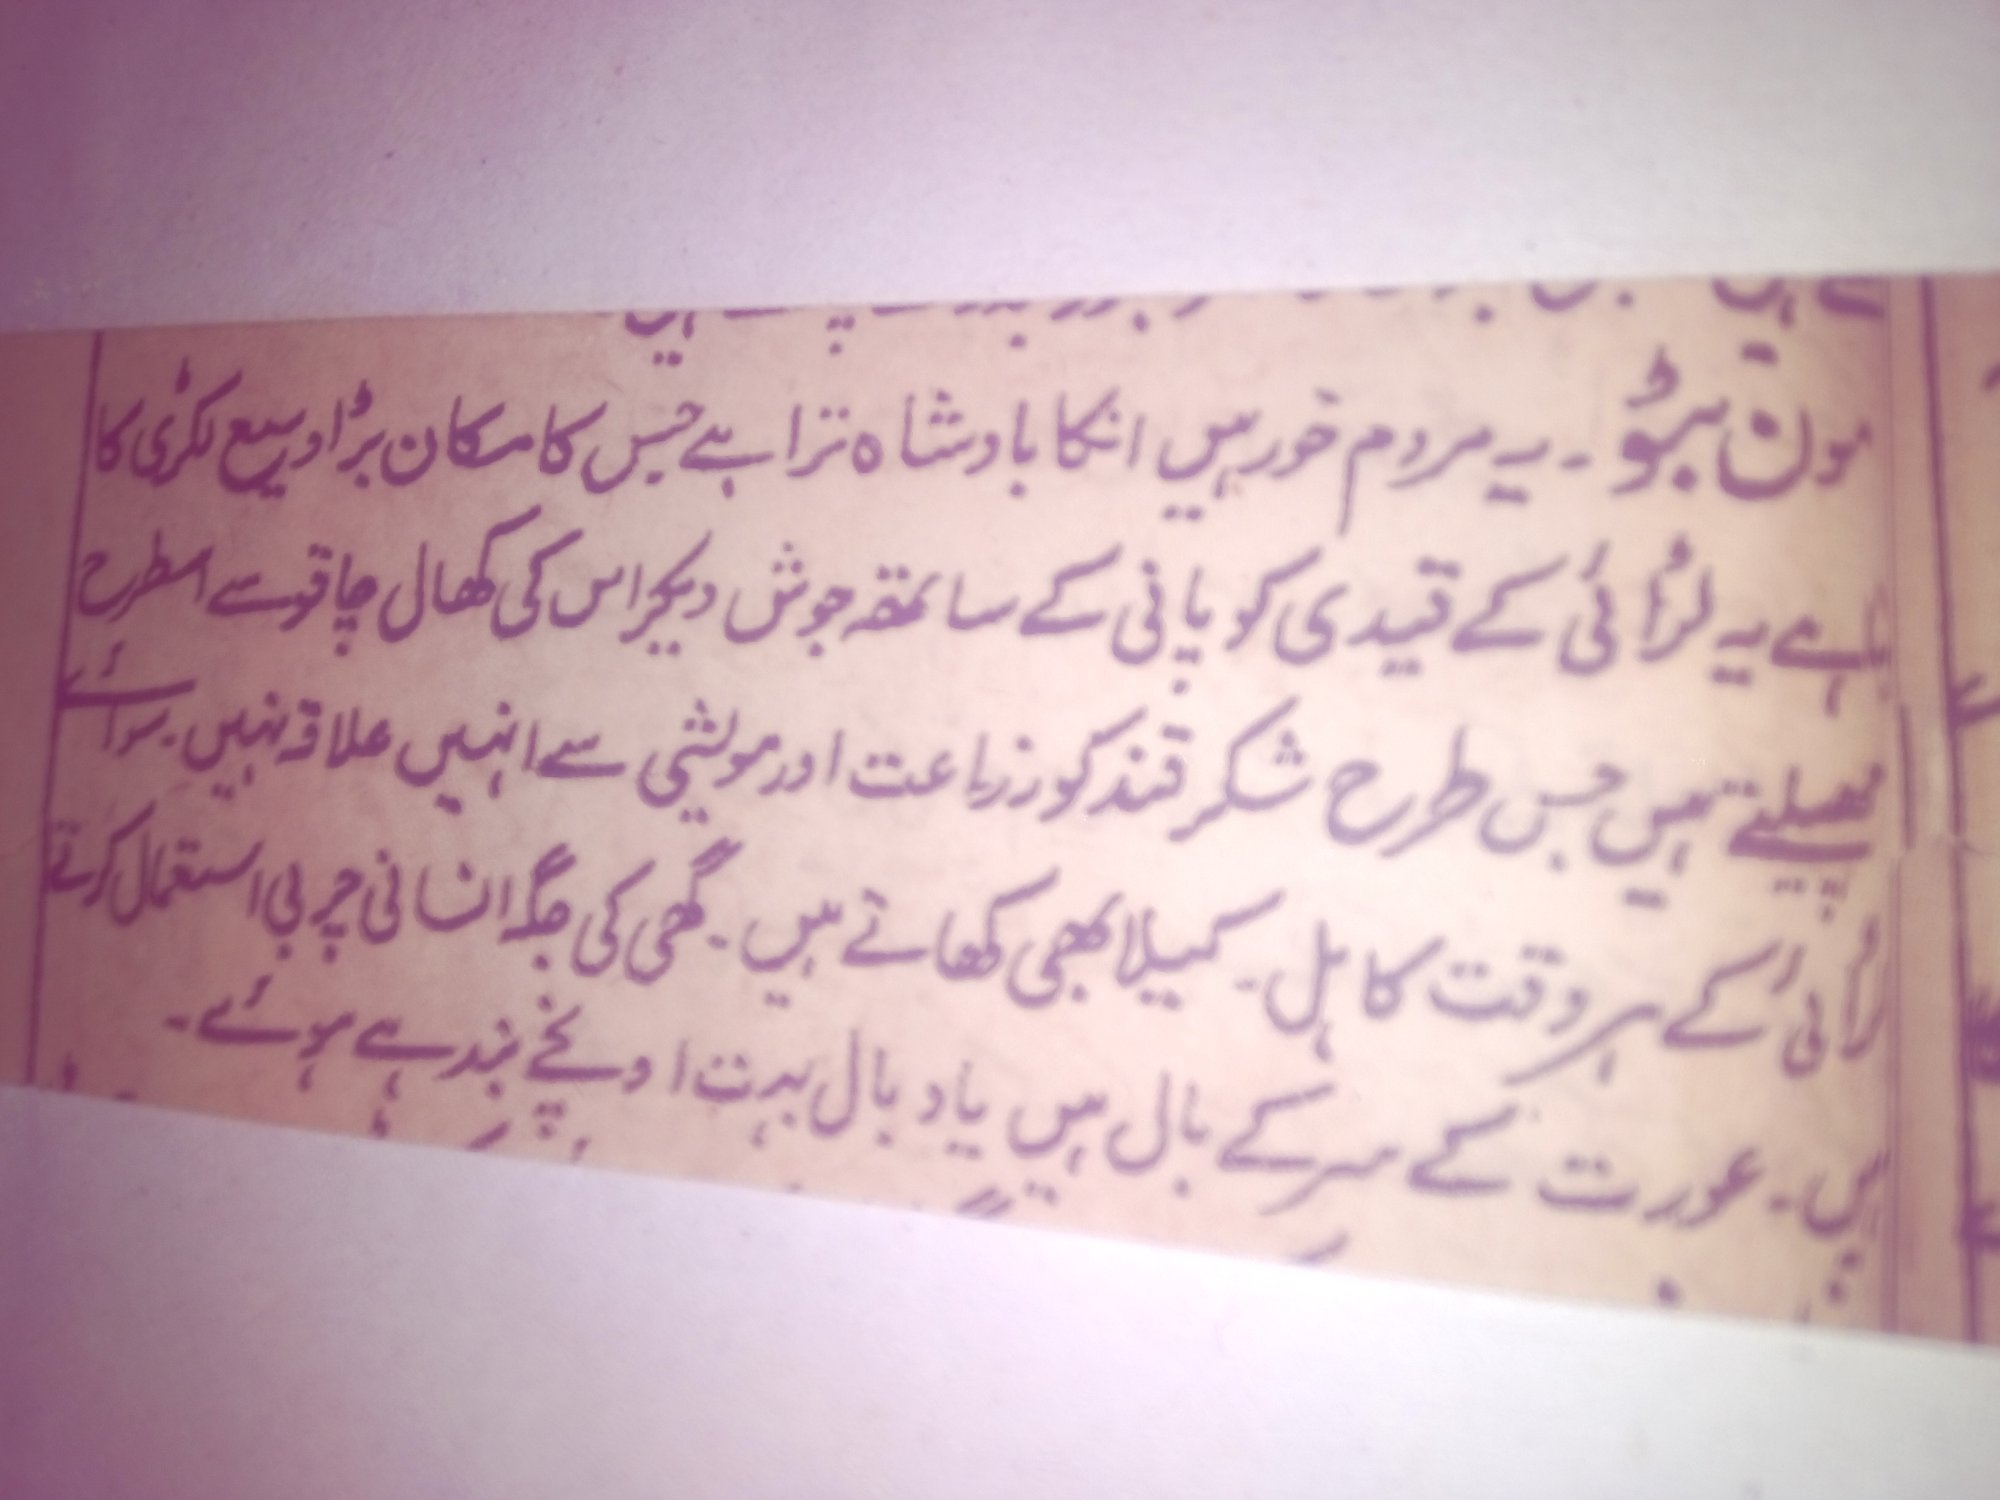 مون بٹو ۔ یہ مردم خور ہیں انکا بادشاہ تزا ہے جس کا مکان بڑا وسیع لکڑی کا
ہے یہ لڑائی کے قیدی کو پانی کے ساتھ جوش دیکر اس کی کھال چاقو سے اسطرح
چھیلتے ہیں جس طرح شکر قند کو زراعت اور مویشی سے انہیں علاقہ نہیں ۔ سوائے
لڑائی کے ہر وقت کاہل ۔ کیلا بھی کھاتے ہیں ۔ گھی کی جگہ انسانی چربی استعمال کرتے
ہیں ۔ عورت کے سر کے بال ہیں یاد بال بہت اونچے بندہے ہوئے ۔